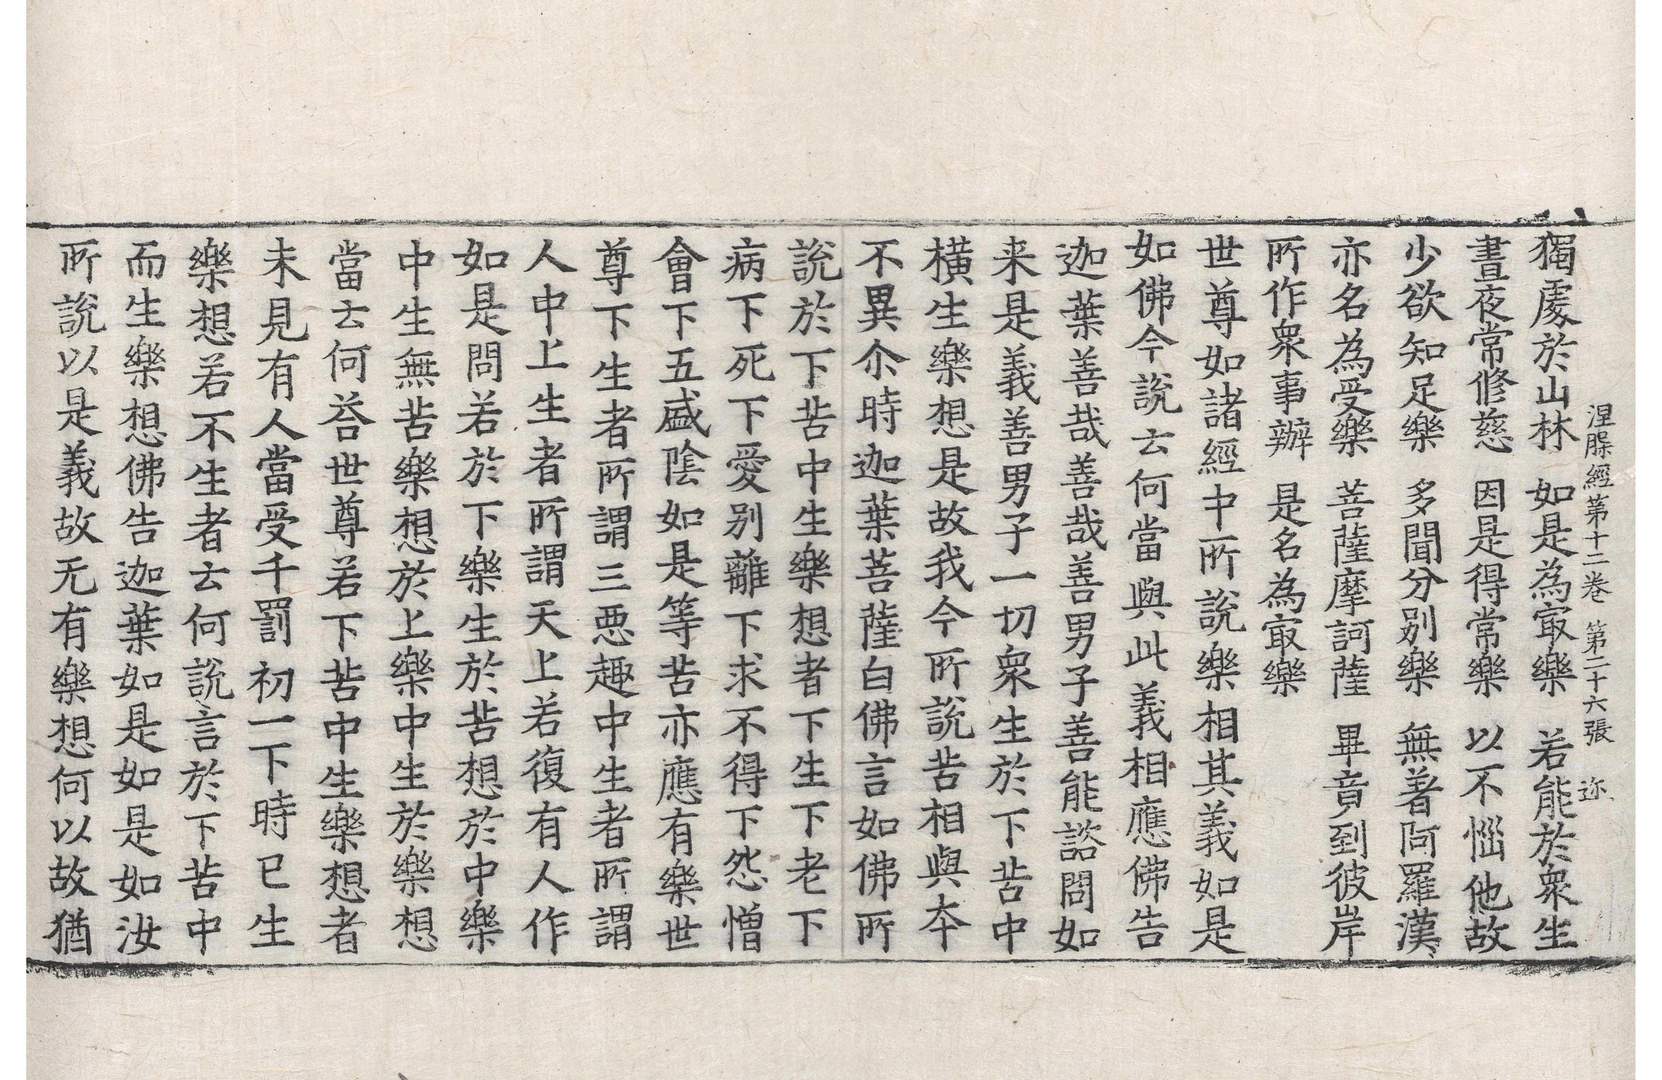 涅槃經第十二卷 第二十六張 迩
獨處於山林 如是為㝡樂 若能於衆生
晝夜常修慈 因是得常樂 以不惱他故
少欲知足樂 多聞分別樂 無著阿羅漢
亦名為受樂 菩薩摩訶薩 畢竟到彼岸
所作衆事辦 是名為㝡樂
世尊如諸經中所說樂相其義如是
如佛今說云何當與此義相應佛告
迦葉善哉善哉善男子善能諮問如
来是義善男子一切衆生於下苦中
橫生樂想是故我今所說苦相與夲
不異尒時迦葉菩薩白佛言如佛所
說於下苦中生樂想者下生下老下
病下死下愛別離下求不得下怨憎
會下五盛陰如是等苦亦應有樂世
尊下生者所謂三惡趣中生者所謂
人中上生者所謂天上若復有人作
如是問若於下樂生於苦想於中樂
中生無苦樂想於上樂中生於樂想
當云何荅世尊若下苦中生樂想者
未見有人當受千罰初一下時已生
樂想若不生者云何說言於下苦中
而生樂想佛告迦葉如是如是如汝
所說以是義故无有樂想何以故猶